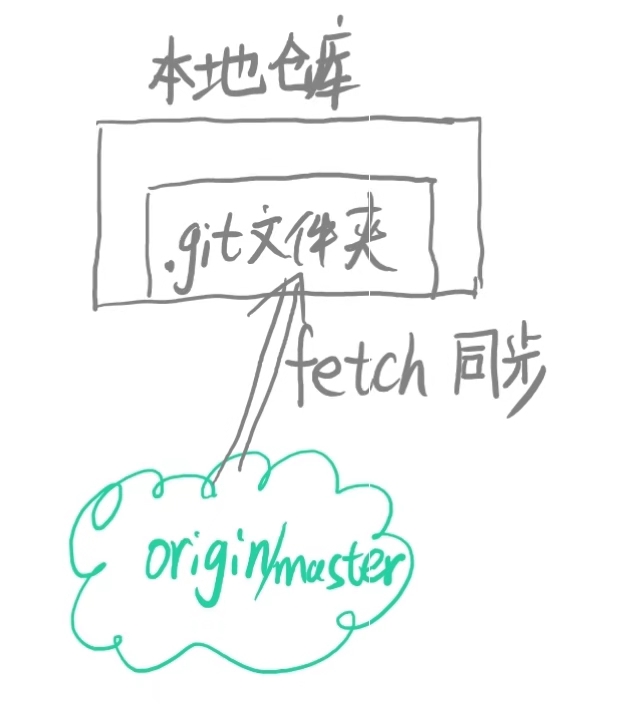 本地仓库
.git文件夹
fetch 同步
origin/master